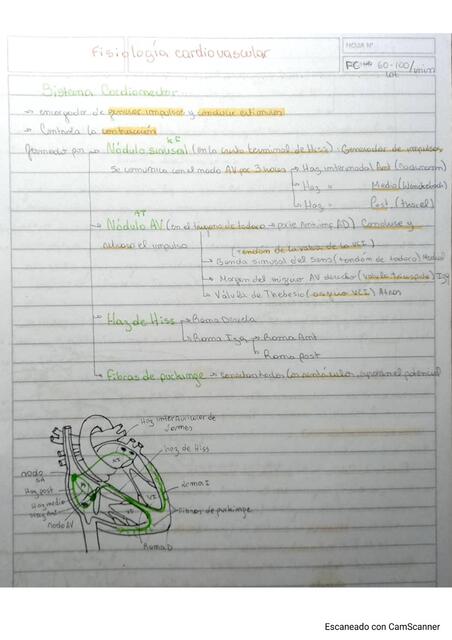 HOJA N°
Fisiología cardiovascular
FC 60-100 lat/min
Sistema Cardionector
→ encargador de generar impulsos y conducir estimulos
→ Controla la contracción
formado por → Nódulo sinusal (en la cresta terminal de Hiss): Generador de impulsos
Se comunica con el nodo AV por 3 haces → Haz internodal Ant (Bachmann)
→ Haz = Medio (Wenckebach)
→ Haz = Post (thorel)
→ Nódulo AV (en el triangulo de todaro → parte Ant. inf AD) Conduce y
retraso el impulso
(tendón de la valvula de la VCI)
→ Banda sinusal del Seno (tendón de todaro) Medial
→ Margen del mismo AV derecho (valvula tricuspide) Izq
→ Válvula de Thebesio (VCI) Atras
→ Haz de Hiss → Rama Derecha
→ Rama Izq → Rama Ant
→ Rama post
→ Fibras de purkinge → conectan todos los ventriculos, el potencial
Haz interauricular de
haz de Hiss
nodo
SA
Rama I
Haz post
Haz medio
Haz Ant
Fibras de purkinge
VI
Nodo AV
Rama D
Escaneado con CamScanner